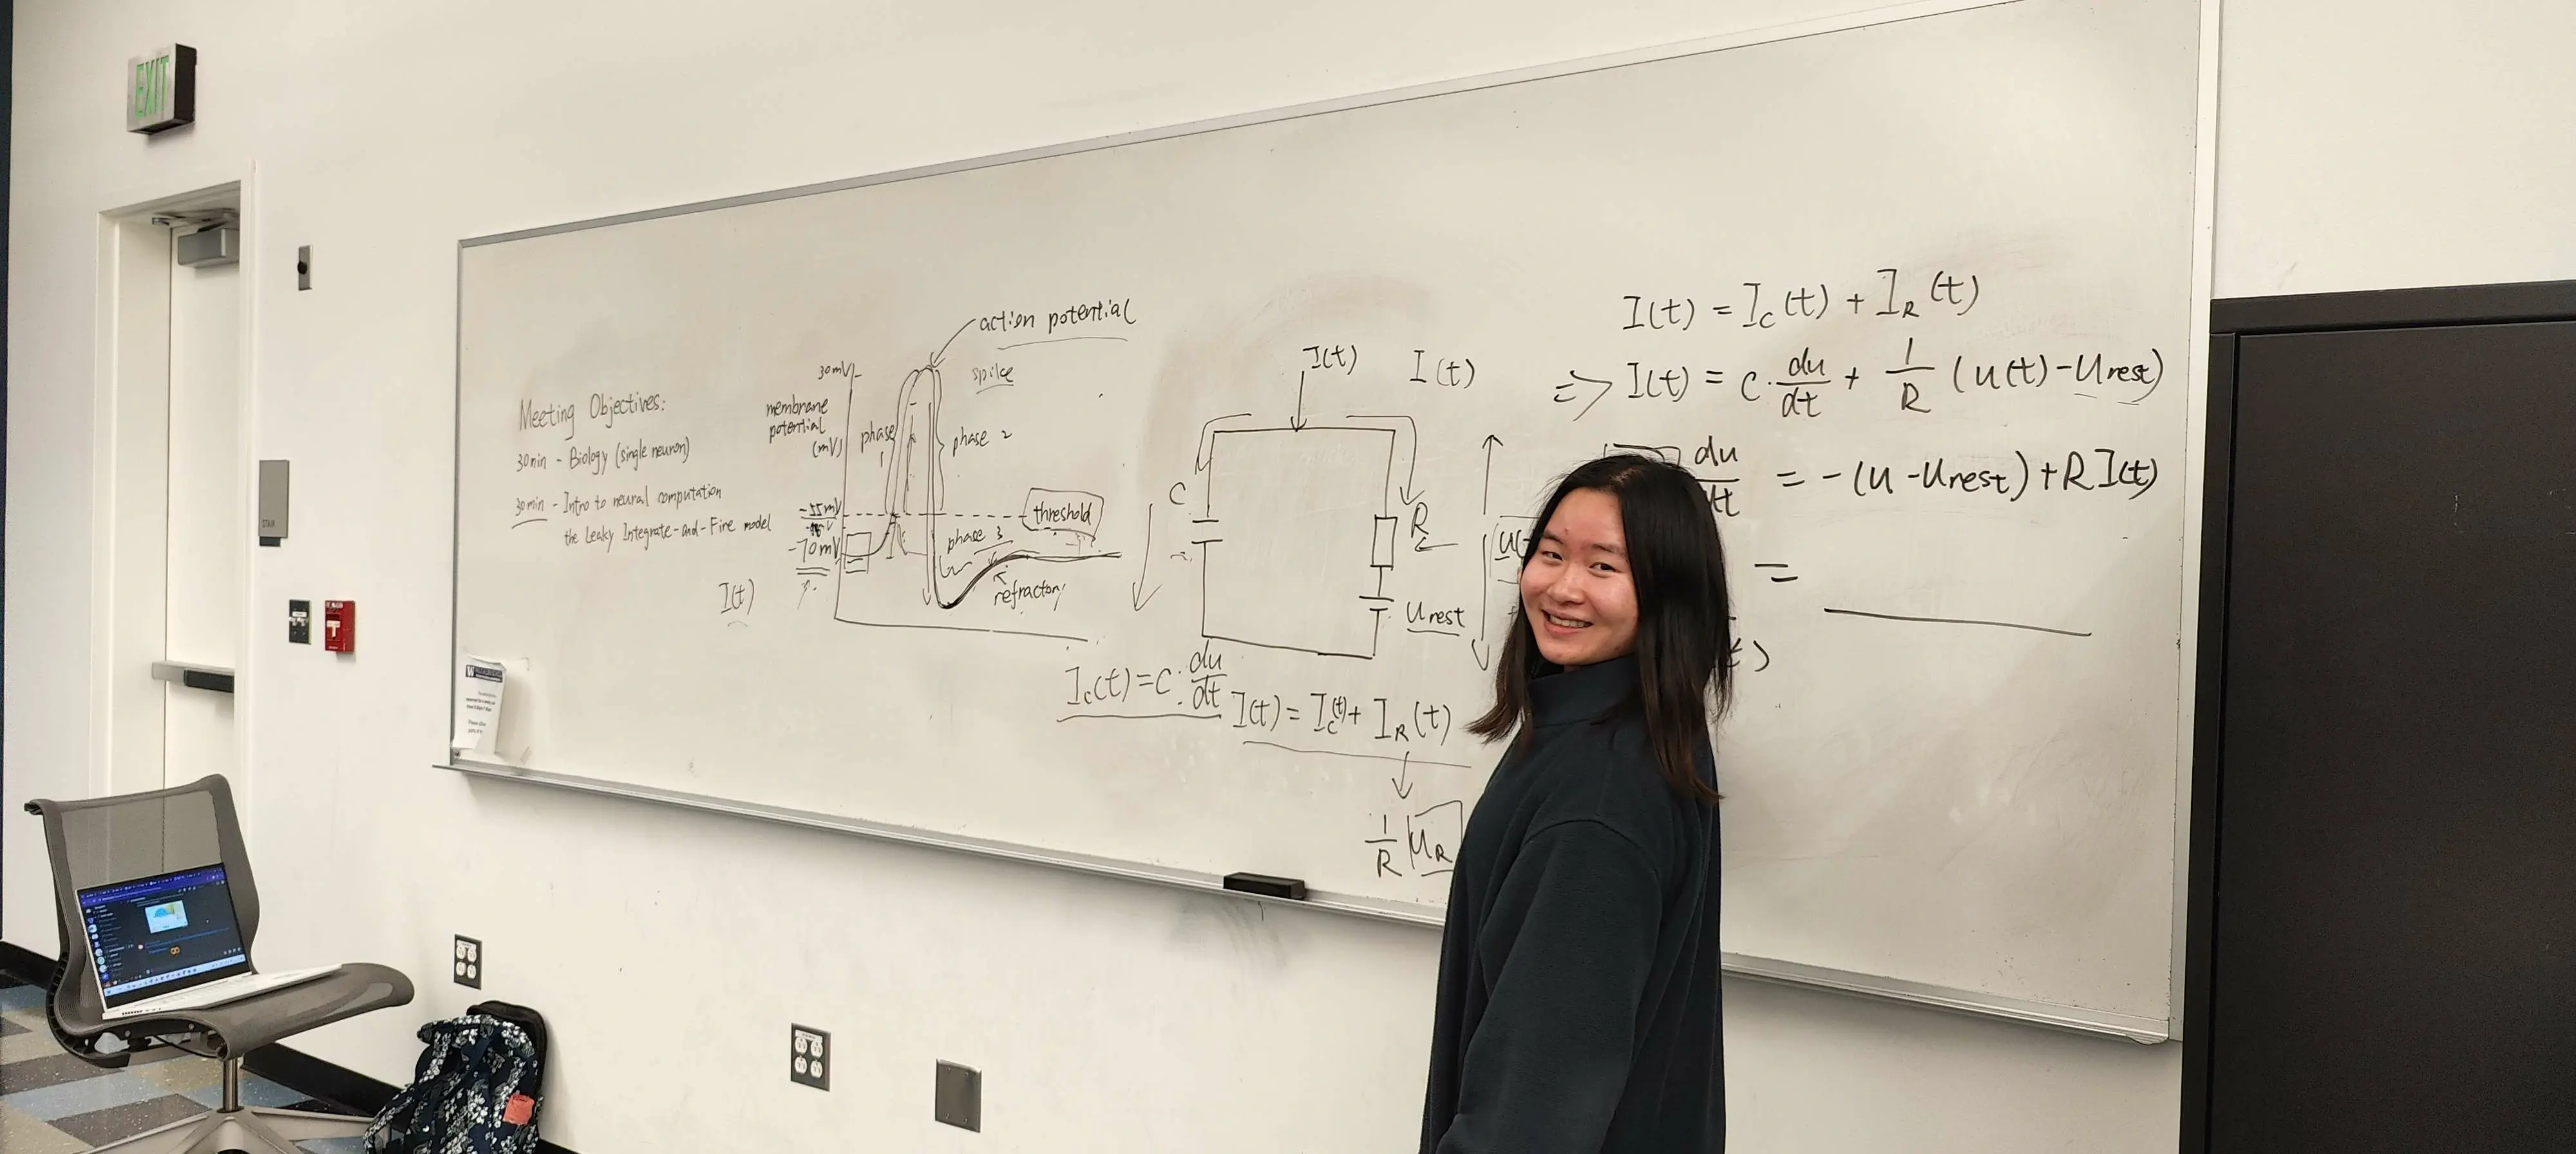 EXIT
Meeting Objectives:
30min - Biology (single neuron)
30min - Intro to neural computation
the Leaky Integrate-and-Fire model
I(t)
action potential
spike
30mV
membrane
potential
(mV)
phase
1
phase 2
-55mV
-70mV
threshold
phase 3
refractory
I(t)
I(t)
C
R
Urest
u(
Ic(t) = C · du/dt
I(t) = Ic(t) + IR(t)
1/R UR
I(t) = Ic(t) + IR(t)
=> I(t) = C · du/dt + 1/R (u(t) - Urest)
du/dt = -(u - Urest) + R I(t)
=
t)
STAIR
W